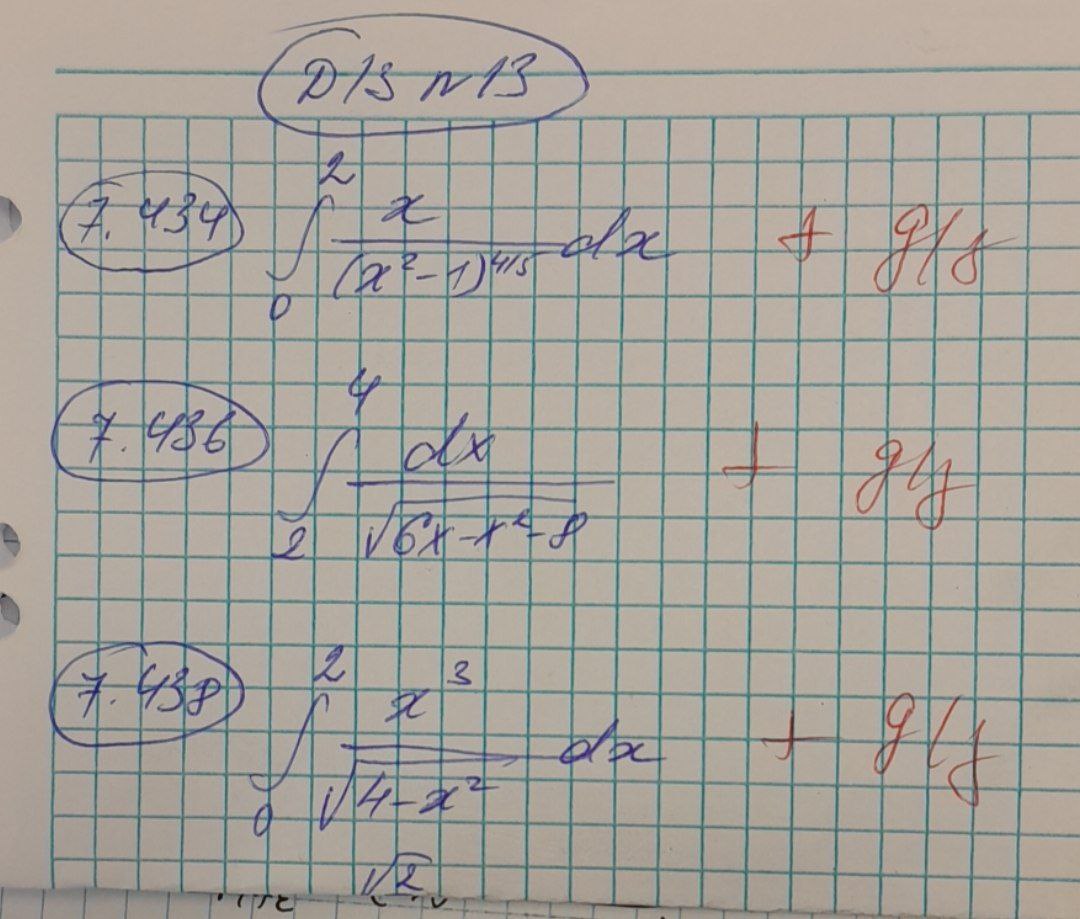 Д/З n 13
7.434 ∫₀² x/(x²-1)^(4/5) dx + д/з
7.436 ∫₂⁴ dx/√(6x-x²-8) + д/з
7.438 ∫₀² x³/√(4-x²) dx + д/з
√2